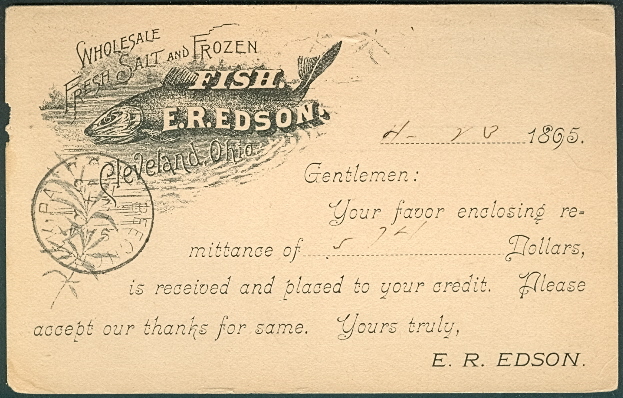 WHOLESALE
FRESH SALT AND FROZEN
FISH.
E.R. EDSON.
Cleveland, Ohio.
1895.
Gentlemen:
Your favor enclosing re=
mittance of Dollars,
is received and placed to your credit. Please
accept our thanks for same. Yours truly,
E. R. EDSON.